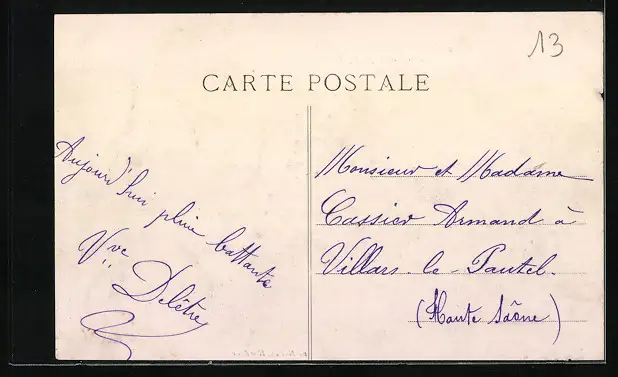 13
CARTE POSTALE
Aujourd'hui pluie battante
Vve Delêtre
Monsieur et Madame
Cassier Armand à
Villars-le-Pautel.
(Haute Saône)